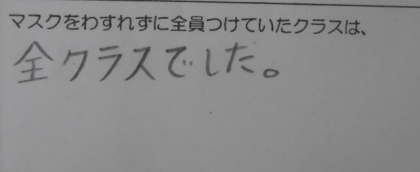 マスクをわすれずに全員つけていたクラスは、
全クラスでした。